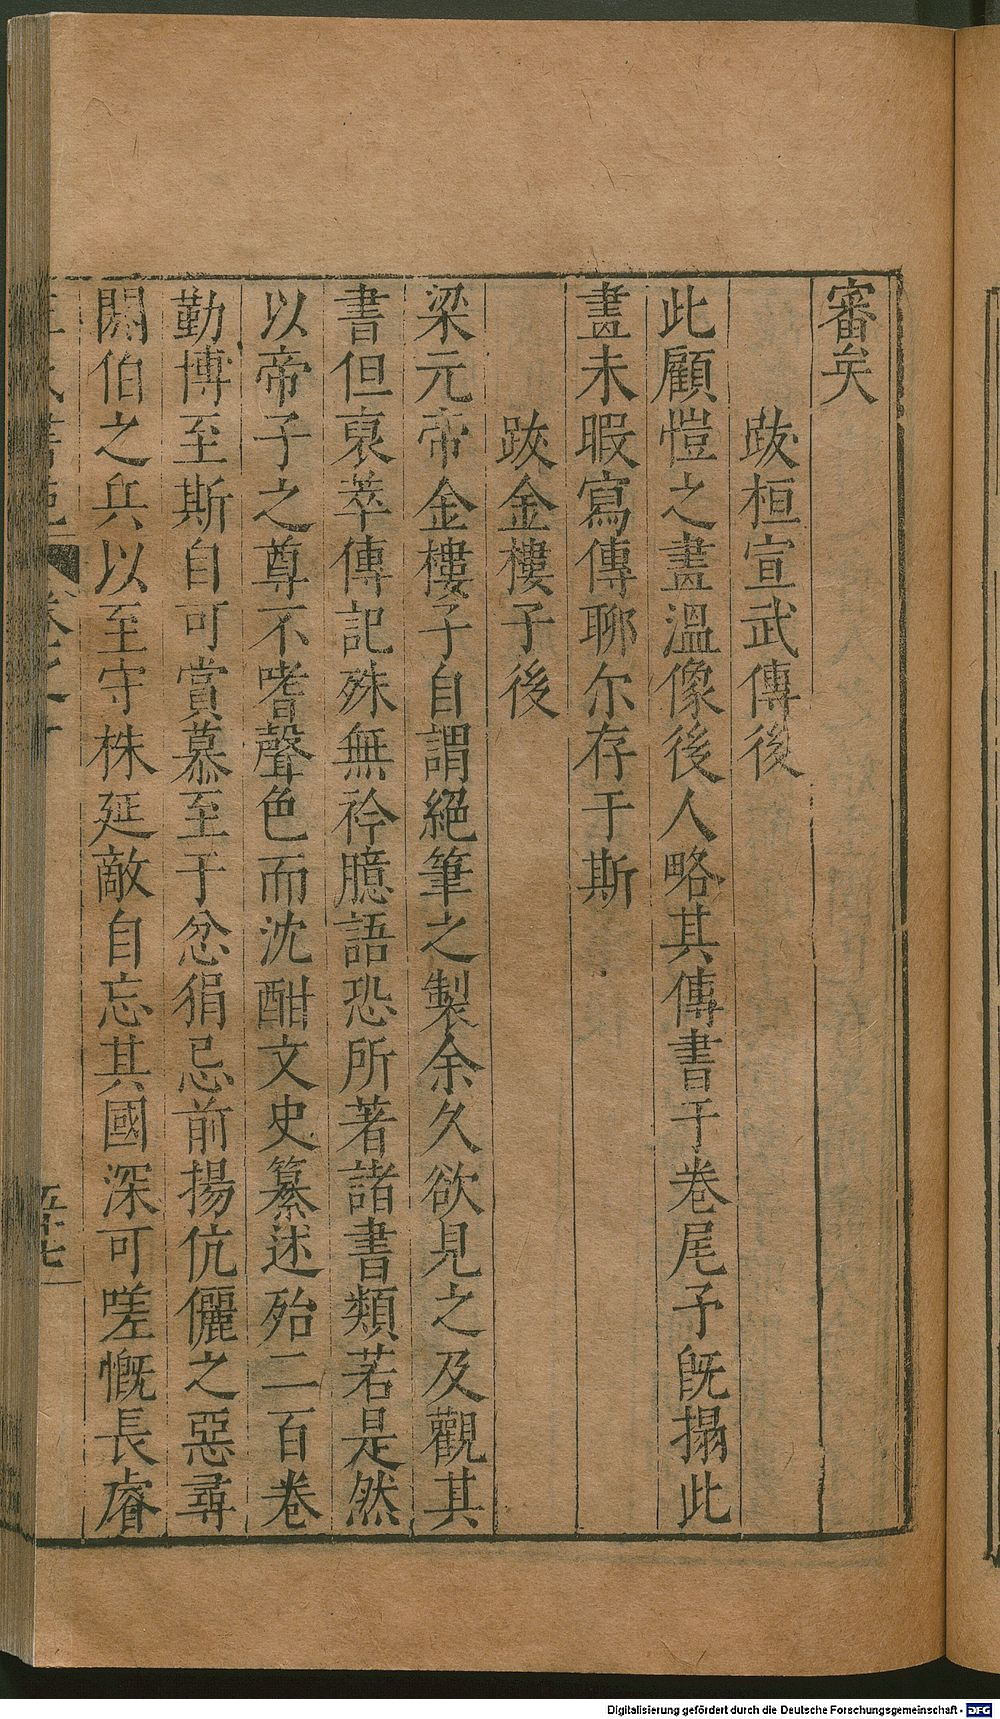 審矣
跋桓宣武傳後
此顧愷之畫溫像後人略其傳書于卷尾予旣搨此
畫未暇寫傳聊尔存于斯
跋金樓子後
梁元帝金樓子自謂絕筆之製余久欲見之及觀其
書但裒萃傳記殊無衿臆語恐所著諸書類若是然
以帝子之尊不嗜聲色而沈酣文史纂述殆二百卷
勤博至斯自可賞慕至于忿狷忌前揚伉儷之惡尋
閼伯之兵以至守株延敵自忘其國深可嗟慨長睿
Digitalisierung gefördert durch die Deutsche Forschungsgemeinschaft - DFG